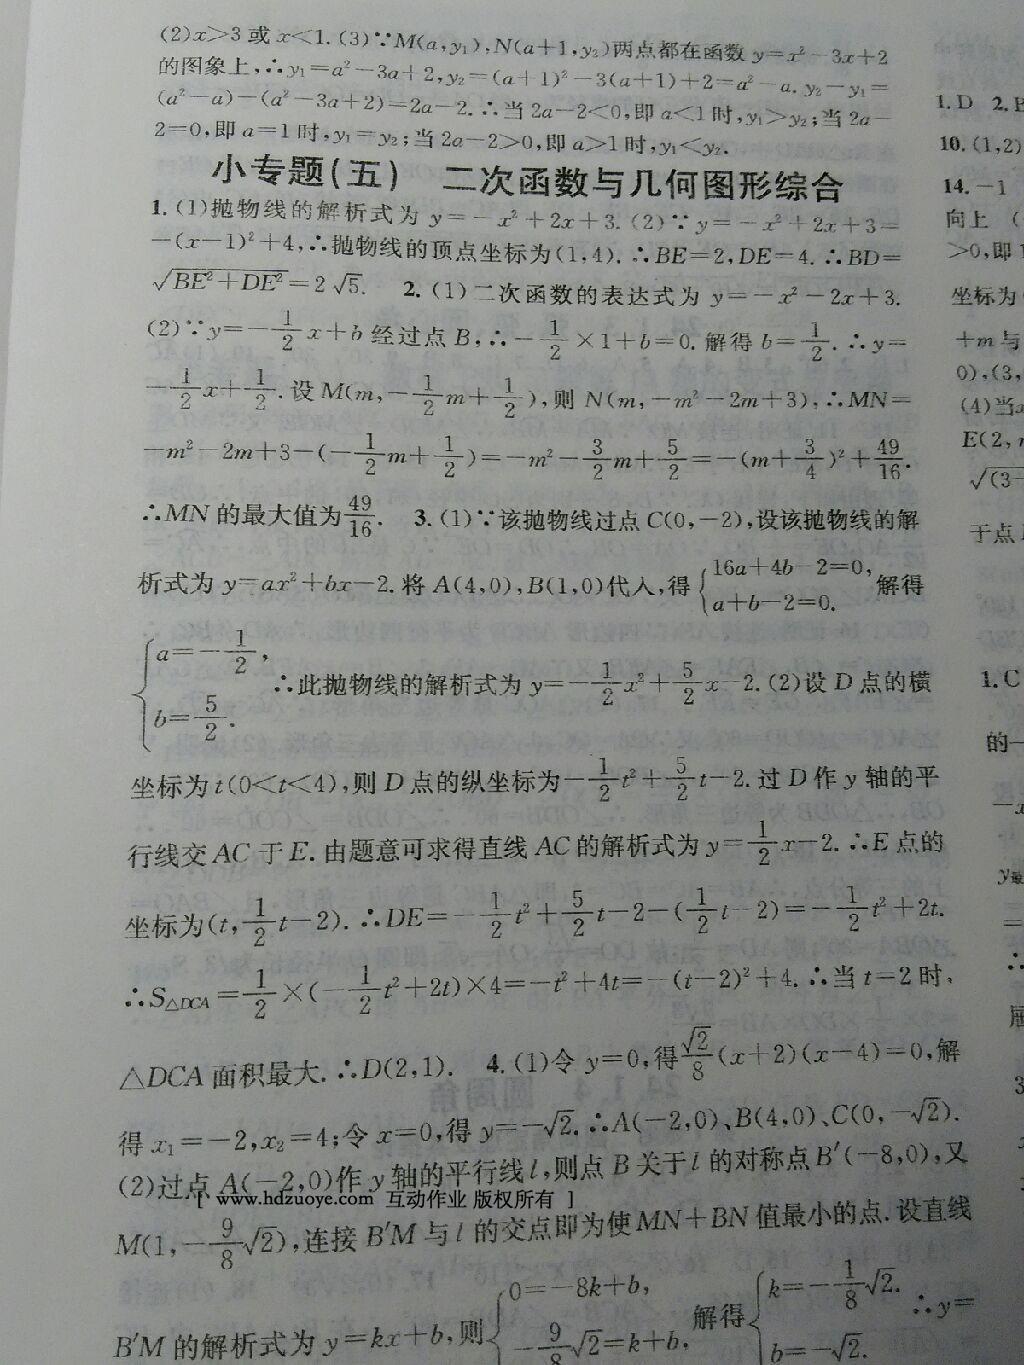 (2)x>3 或 x<1. (3)∵M(a,y₁),N(a+1,y₂)两点都在函数 y=x²-3x+2
的图象上,∴y₁=a²-3a+2,y₂=(a+1)²-3(a+1)+2=a²-a. y₂-y₁=
(a²-a)-(a²-3a+2)=2a-2.∴当 2a-2<0,即 a<1 时,y₁>y₂;当 2a-
2=0,即 a=1 时,y₁=y₂;当 2a-2>0,即 a>1 时,y₁<y₂.
小专题(五) 二次函数与几何图形综合
1. (1)抛物线的解析式为 y=-x²+2x+3. (2)∵y=-x²+2x+3=
-(x-1)²+4,∴抛物线的顶点坐标为(1,4).∴BE=2,DE=4.∴BD=
√(BE²+DE²)=2√5. 2. (1)二次函数的表达式为 y=-x²-2x+3.
(2)∵y=-1/2x+b 经过点 B,∴-1/2×1+b=0. 解得 b=1/2.∴y=
-1/2x+1/2. 设 M(m,-1/2m+1/2),则 N(m,-m²-2m+3),∴MN=
-m²-2m+3-(-1/2m+1/2)=-m²-3/2m+5/2=-(m+3/4)²+49/16.
∴MN 的最大值为49/16. 3. (1)∵该抛物线过点 C(0,-2),设该抛物线的解
析式为 y=ax²+bx-2. 将 A(4,0),B(1,0)代入,得{16a+4b-2=0, a+b-2=0. 解得
{a=-1/2, b=5/2. ∴此抛物线的解析式为 y=-1/2x²+5/2x-2. (2)设 D 点的横
坐标为 t(0<t<4),则 D 点的纵坐标为-1/2t²+5/2t-2. 过 D 作 y 轴的平
行线交 AC 于 E. 由题意可求得直线 AC 的解析式为 y=1/2x-2.∴E 点的
坐标为(t,1/2t-2).∴DE=-1/2t²+5/2t-2-(1/2t-2)=-1/2t²+2t.
∴S△DCA=1/2×(-1/2t²+2t)×4=-t²+4t=-(t-2)²+4.∴当 t=2 时,
△DCA 面积最大.∴D(2,1). 4. (1)令 y=0,得√2/8(x+2)(x-4)=0,解
得 x₁=-2,x₂=4;令 x=0,得 y=-√2.∴A(-2,0)、B(4,0)、C(0,-√2).
(2)过点 A(-2,0)作 y 轴的平行线 l,则点 B 关于 l 的对称点 B′(-8,0),又
[ www.hdzuoye.com 互动作业 版权所有 ]
M(1,-9/8√2),连接 B′M 与 l 的交点即为使 MN+BN 值最小的点. 设直线
B′M 的解析式为 y=kx+b,则{0=-8k+b, -9/8√2=k+b, 解得{k=-1/8√2. b=-√2. ∴y=
1. D 2.
10. (1,2)
14. -1
向上
>0,即
坐标为
+m 与
0),(3,
(4)当
E(2,
√(3-
于点
1. C
的一